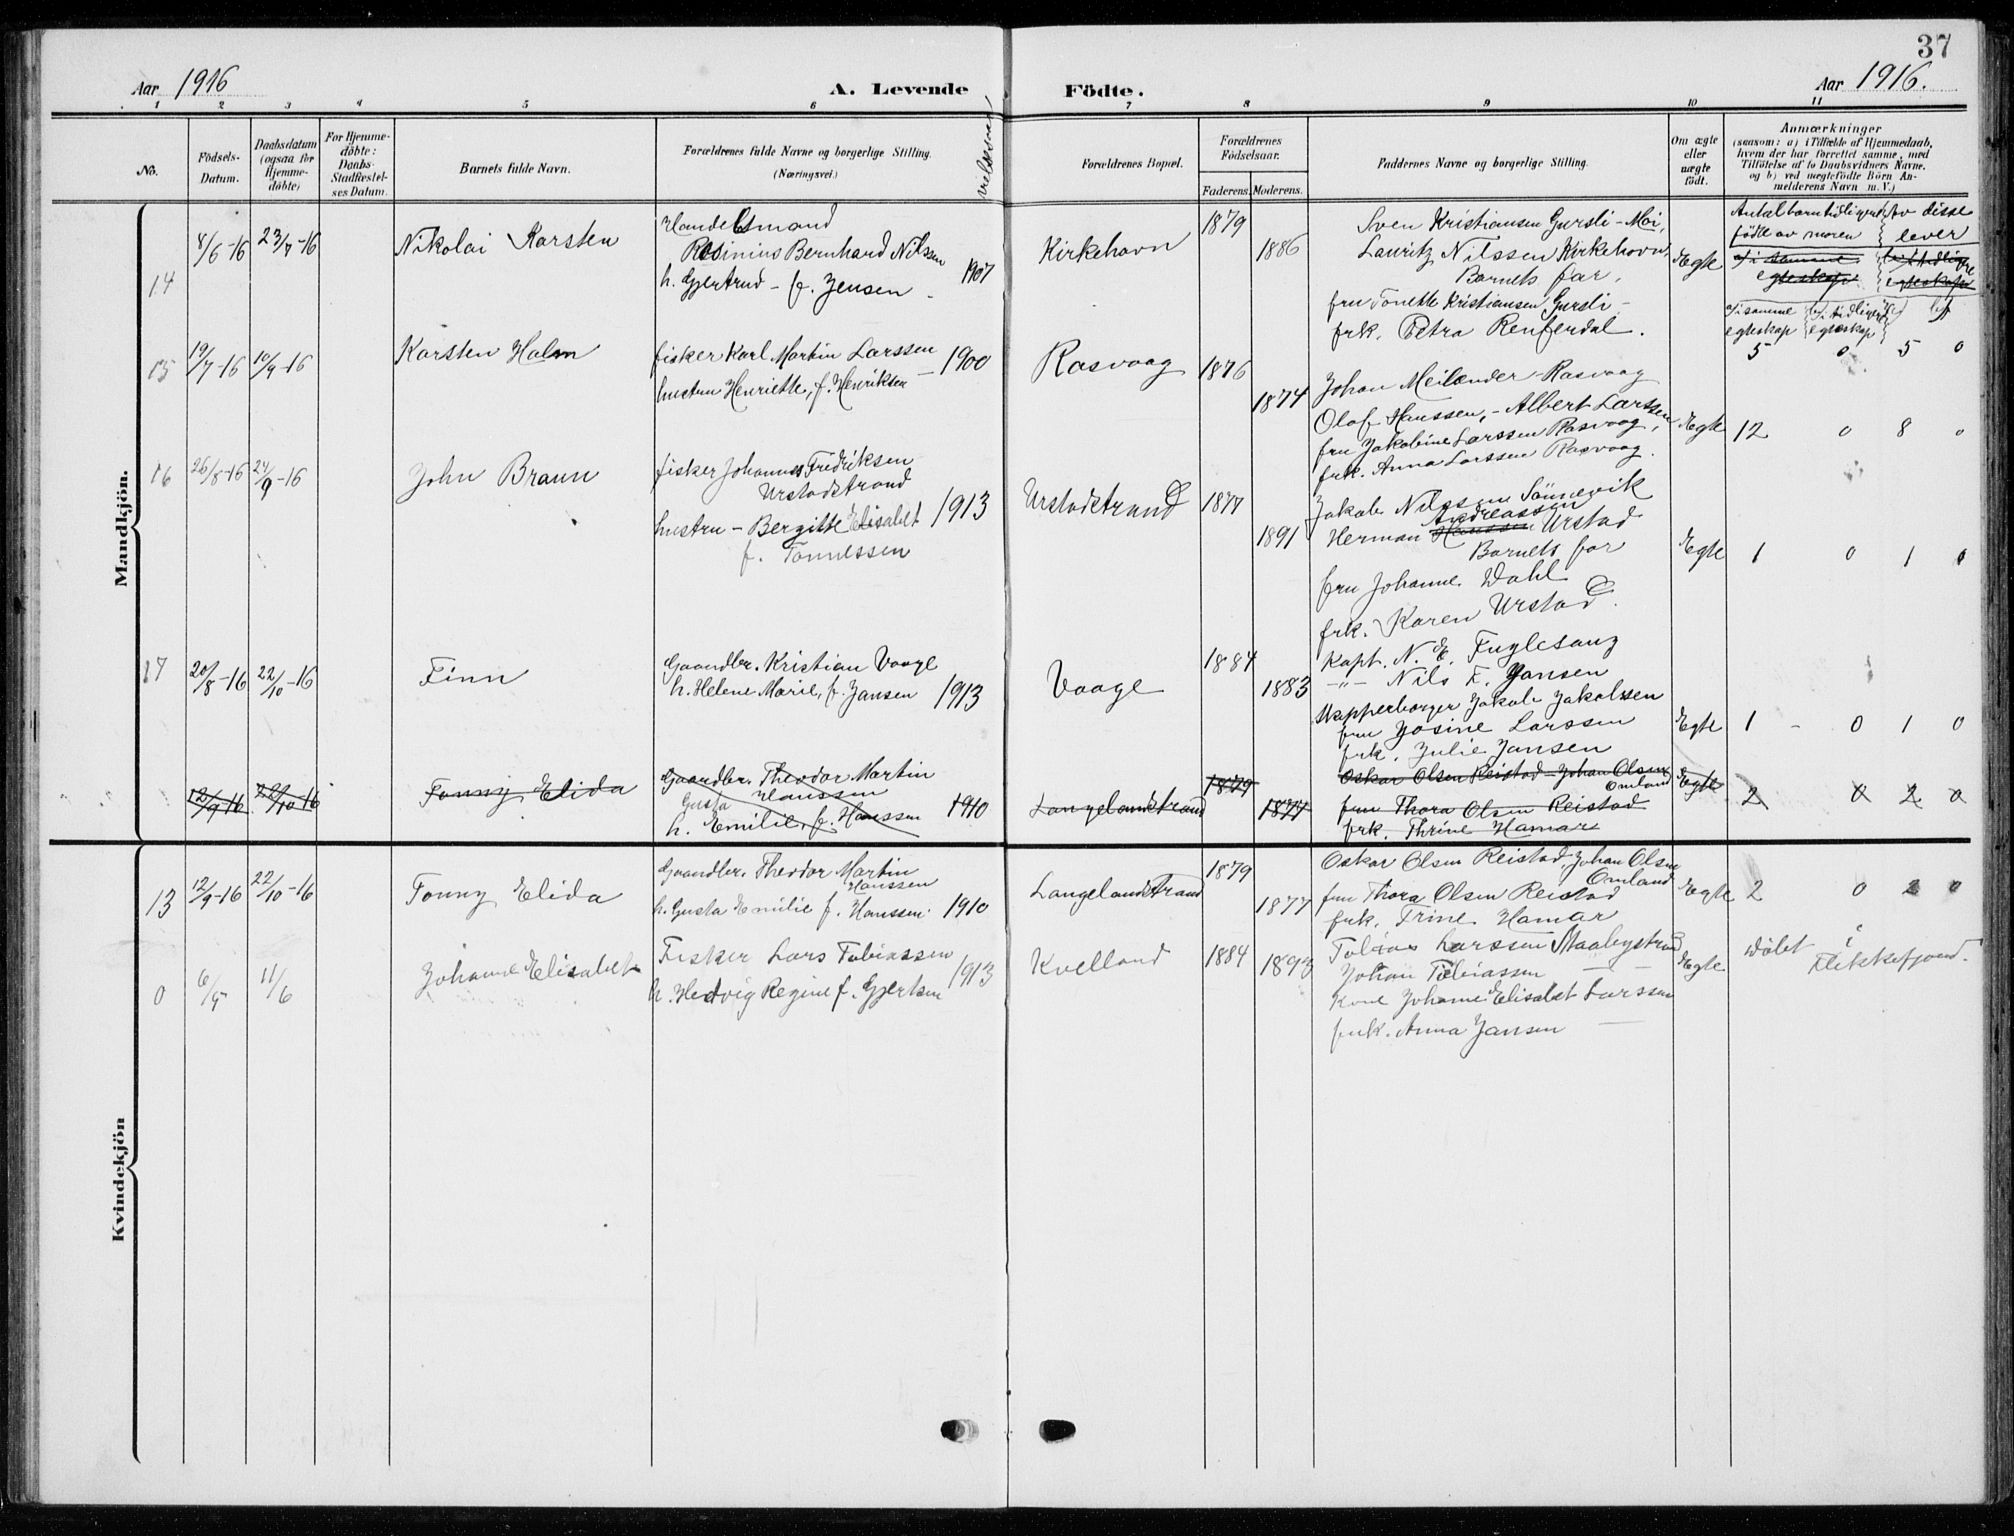 37
Aar 1916
A. Levende
Födte.
Aar 1916.
1 2 3 4 5 6 7 8 9 10 11
No.
Födsels-Datum.
Daabsdatum (ogsaa for Hjemme-döbte)
For Hjemme-döbte: Daabs-Stadfæstel-ses Datum.
Barnets fulde Navn.
Forældrenes fulde Navne og borgerlige Stilling.
(Næringsvei.)
Forældrenes Bopæl.
Forældrenes Födselsaar.
Faderens. Moderens.
Faddernes Navne og borgerlige Stilling.
Om ægte eller uægte födt.
Anmærkninger
(saasom: a) i Tilfælde af Hjemmedaab,
hvem der har forrettet samme, med
Tilföielse af to Daabsvidners Navne.
og b) ved uegtefödte Börn An-
melderens Navn m. V.)
Mandkjön.
14
8/6-16
23/7-16
Nikolai Karsten
Handelsmand
Rosinius Bernhard Nilssen
h. Gjertrud - f. Jensen - 1907
Kirkehavn
1879
1886
Sven Kristiansen Gursli - Moi,
Lauritz Nilssen Kirkehovn,
Barnets far,
fru Tonette Kristiansen Gursli -
frk. Petra Renferdal.
Egte
Antal barn tidligere
födte av moren
Av disse
lever
a) i samme
egteskap
b) i tidligere
egteskap
a) i samme
egteskap
b) i tidligere
egteskap
5 0 5 0
15
19/7-16
10/9-16
Karsten Holm
fisker Karl Martin Larssen
hustru Henriette, f. Henriksen - 1900
Rasvaag
1876
1874
Johan Meilænder - Rasvaag
Olaf Hanssen, - Albert Larssen
fru Jakobine Larssen Rasvaag,
frk. Anna Larssen Rasvaag.
Egte
12 0 8 0
16
26/8-16
24/9-16
John Braun
fisker Johannes Fredriksen
Urstadstrand
hustru - Bergitte Elisabet 1913
f. Tönnessen
Urstadstrand
1877
1891
Jakob Nilssen Sönnevik
Andreassen
Herman Hanssen Urstad
Barnets far
fru Johanne Wahl
frk. Karen Urstad.
Egte
1 0 1 0
17
20/8-16
22/10-16
Finn
Gaardbr. Kristian Vaage
h. Helene Marie, f. Jansen 1913
Vaage
1884
1883
Kapt. N. E. Fuglesang
-"- Nils F. Jansen
Skipperborger Jakob Jakobsen
fru Josine Larssen
frk. Julie Jansen
Egte
1 - 0 1 0
12/9-16
22/10-16
Tonny Elida
Gaardbr. Theodor Martin
Hanssen
Gusta
h. Emilie, f. Hanssen 1910
Langelandstrand
1879
1877
Oskar Olsen Reistad - Johan Olsen
Omland
fru Thora Olsen Reistad
frk. Thrine Hamar
Egte
2 0 2 0
Kvindekjön
13
12/9-16
22/10-16
Tonny Elida
Gaardbr. Theodor Martin
Hanssen
h. Gusta Emilie f. Hanssen. 1910
Langelandstrand
1879
1877
Oskar Olsen Reistad, Johan Olsen
Omland
fru Thora Olsen Reistad
frk. Trine Hamar
Egte
2 0 2 0
0
6/5
11/6
Johanne Elisabet
Fisker Lars Tobiassen
h. Hedvig Regine f. Gjertsen 1913
Kvelland
1884
1893
Tobias Larssen Staabystrand
Johan Tobiassen -
Kone Johanne Elisabet Larssen
frk. Anna Jansen -
Egte
döbt i
Flekkefjord.